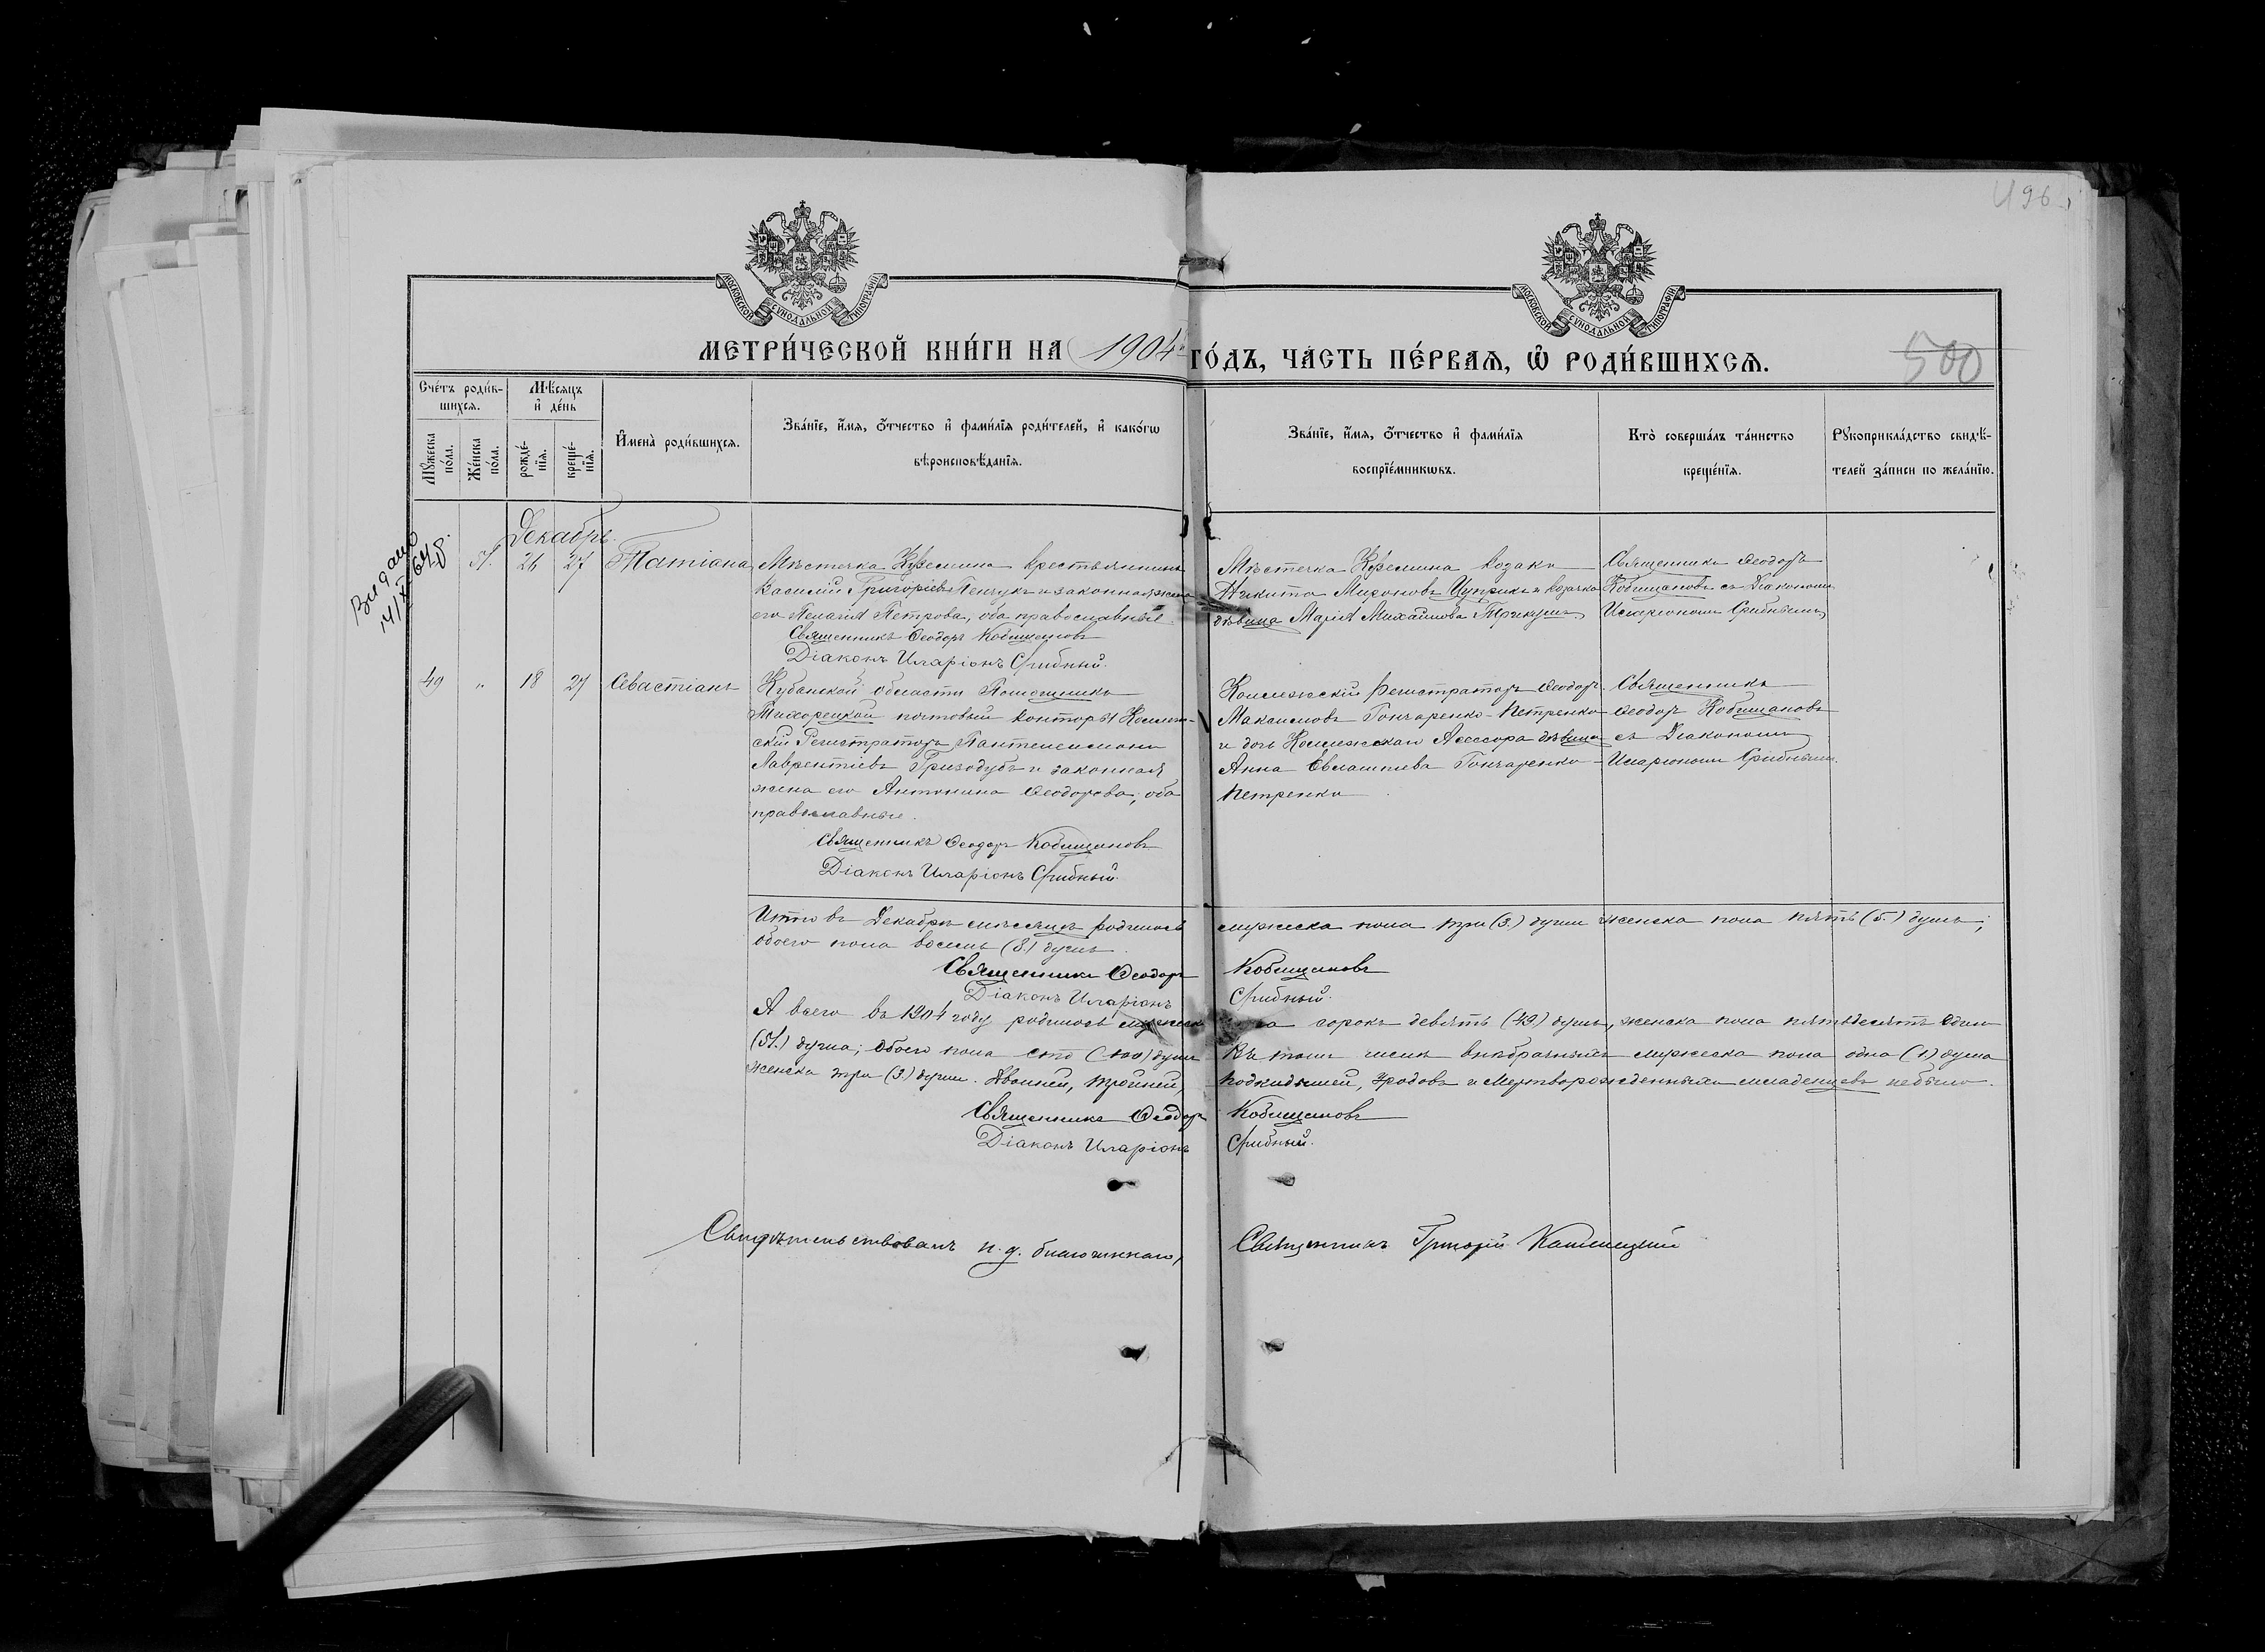 496
МОСКОВСКОЙ СУНОДАЛЬНОЙ ТИПОГРАФІИ
МОСКОВСКОЙ СУНОДАЛЬНОЙ ТИПОГРАФІИ
МЕТРИ́ЧЕСКОЙ КНИ́ГИ НА 1904 ГО́ДЪ, ЧА́СТЬ ПЕ́РВАѦ, Ѡ҆ РОДИ́ВШИХСѦ.
500
Сче́тъ роди́в-
шихсѧ.
Мѣ́сѧцъ
и҆ де́нь
Мꙋ́жеска
по́ла.
Же́нска
по́ла.
рожде́-
нїѧ.
креще́-
нїѧ.
И҆мена̀ роди́вшихсѧ.
Зва́нїе, и҆́мѧ, ѻ҆́тчество и҆ фами́лїѧ роди́телей, и҆ како́гѡ
вѣроисповѣ́данїѧ.
Зва́нїе, и҆́мѧ, ѻ҆́тчество и҆ фами́лїѧ
воспрїе́мникѡвъ.
Кто̀ соверша́лъ та́инство
креще́нїѧ.
Рꙋкоприкла́дство свидѣ́-
телей за́писи по жела́нїю.
Декабрь.
Выдано
51. 26 27 Татіана
Мѣстечка крестьянинъ
Василій Григоріевъ Пенчукъ и законная жена
его Пелагія Петрова, оба православные.
Священникъ Ѳеодоръ Кобищановъ
Діаконъ Иларіонъ Срибный.
Мѣстечка козакъ
Никита Мироновъ Цуприкъ и козачка
дѣвица Марія Михайлова
Священникъ Ѳеодоръ
Кобищановъ съ Діакономъ
Иларіономъ Срибнымъ
49 „ 18 27 Севастіанъ
Кубанской области Помощникъ
Тихорецкой почтовый конторы Коллеж-
скій Регистраторъ Пантелеимонъ
Лаврентіевъ Гризодубъ и законная
жена его Антонина Ѳеодорова, оба
православные.
Священникъ Ѳеодоръ Кобищановъ
Діаконъ Иларіонъ Срибный.
Коллежскій Регистраторъ Ѳеодоръ
Максимовъ Гончаренко-Петренко
и дочь Коллежскаго Ассесора дѣвица
Анна Евлампіева Гончаренко-
Петренко
Священникъ
Ѳеодоръ Кобищановъ
съ Діакономъ
Иларіономъ Срибнымъ.
Итого въ Декабрѣ мѣсяцѣ родилось мужеска пола три (3.) души женска пола пять (5.) душъ;
обоего пола восемь (8.) душъ
Священникъ Ѳеодоръ Кобищановъ
Діаконъ Иларіонъ Срибный.
А всего въ 1904 году родилось сорокъ девять (49.) душъ, женска пола пятьдесятъ одна
(51.) душа; обоего пола сто (100) душъ Въ томъ числѣ внѣбрачныхъ мужеска пола одна (1.) душа
женска три (3.) души. Двойней, тройней, подкидышей, уродовъ и мертворожденныхъ младенцевъ небыло.
Священникъ Ѳеодоръ Кобищановъ
Діаконъ Иларіонъ Срибный.
Свидѣтельствовалъ и.д. благочиннаго, Священникъ Григорій